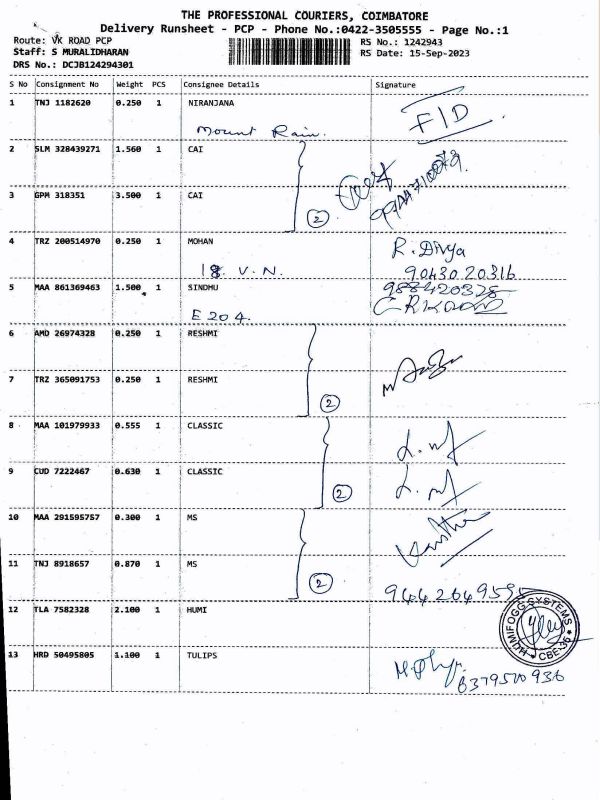 THE PROFESSIONAL COURIERS, COIMBATORE
Delivery Runsheet - PCP - Phone No.:0422-3505555 - Page No.:1
Route: VK ROAD PCP
RS No.: 1242943
Staff: S MURALIDHARAN
RS Date: 15-Sep-2023
DRS No.: DCJB124294301
S No Consignment No Weight PCS Consignee Details Signature
1 TNJ 1182620 0.250 1 NIRANJANA
Mount Rain. F/D
2 SLM 328439271 1.560 1 CAI
3 GPM 318351 3.500 1 CAI
2
4 TRZ 200514970 0.250 1 MOHAN R. Divya
18. V. N. 90430 20316
5 MAA 861369463 1.500 1 SINDHU 988420325
E 204.
6 AMD 26974328 0.250 1 RESHMI
7 TRZ 365091753 0.250 1 RESHMI
2
8 MAA 101979933 0.555 1 CLASSIC
9 CUD 7222467 0.630 1 CLASSIC
2
10 MAA 291595757 0.300 1 MS
11 TNJ 8918657 0.870 1 MS
2
12 TLA 7582328 2.100 1 HUMI
HUMIFOGG SYSTEMS
CBE-36
13 HRD 50495805 1.100 1 TULIPS